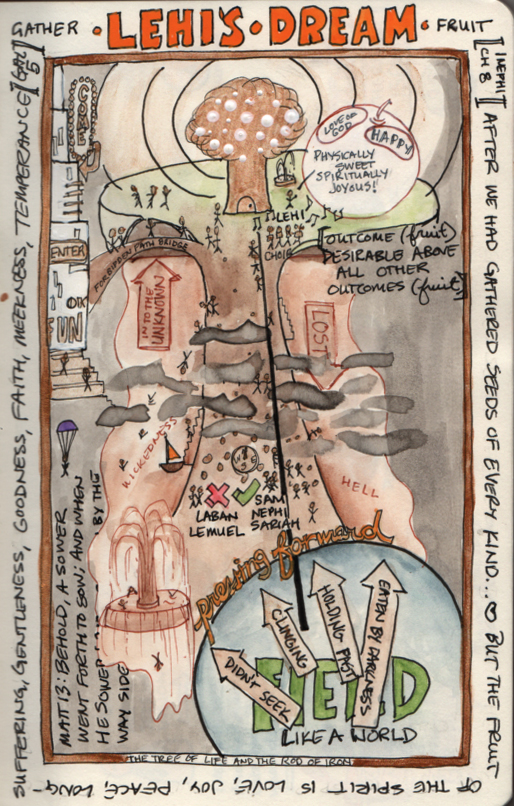 GATHER
·LEHI'S·DREAM·
FRUIT
[1 NEPHI
CH 8]
AFTER WE HAD GATHERED SEEDS OF EVERY KIND... ♡ BUT THE FRUIT
OF THE SPIRIT IS LOVE, JOY, PEACE, LONG-
SUFFERING, GENTLENESS, GOODNESS, FAITH, MEEKNESS, TEMPERANCE
[GAL
5]
LOVE OF
GOD
HAPPY
PHYSICALLY
SWEET
SPIRITUALLY
JOYOUS!
LEHI
CHOIR
[OUTCOME (fruit)
DESIRABLE ABOVE
ALL OTHER
OUTCOMES (fruit)]
ENTER
FUN
FORBIDDEN PATH BRIDGE
INTO THE
UNKNOWN
LOST
WICKEDNESS
HELL
LABAN
LEMUEL
SAM
NEPHI
SARIAH
pressing forward
MATT 13: BEHOLD, A SOWER
WENT FORTH TO SOW; AND WHEN
HE SOWED
BY THE
WAY SIDE
DIDN'T SEEK
CLINGING
HOLDING FAST
EATEN BY DARKNESS
FIELD
LIKE A WORLD
THE TREE OF LIFE AND THE ROD OF IRON